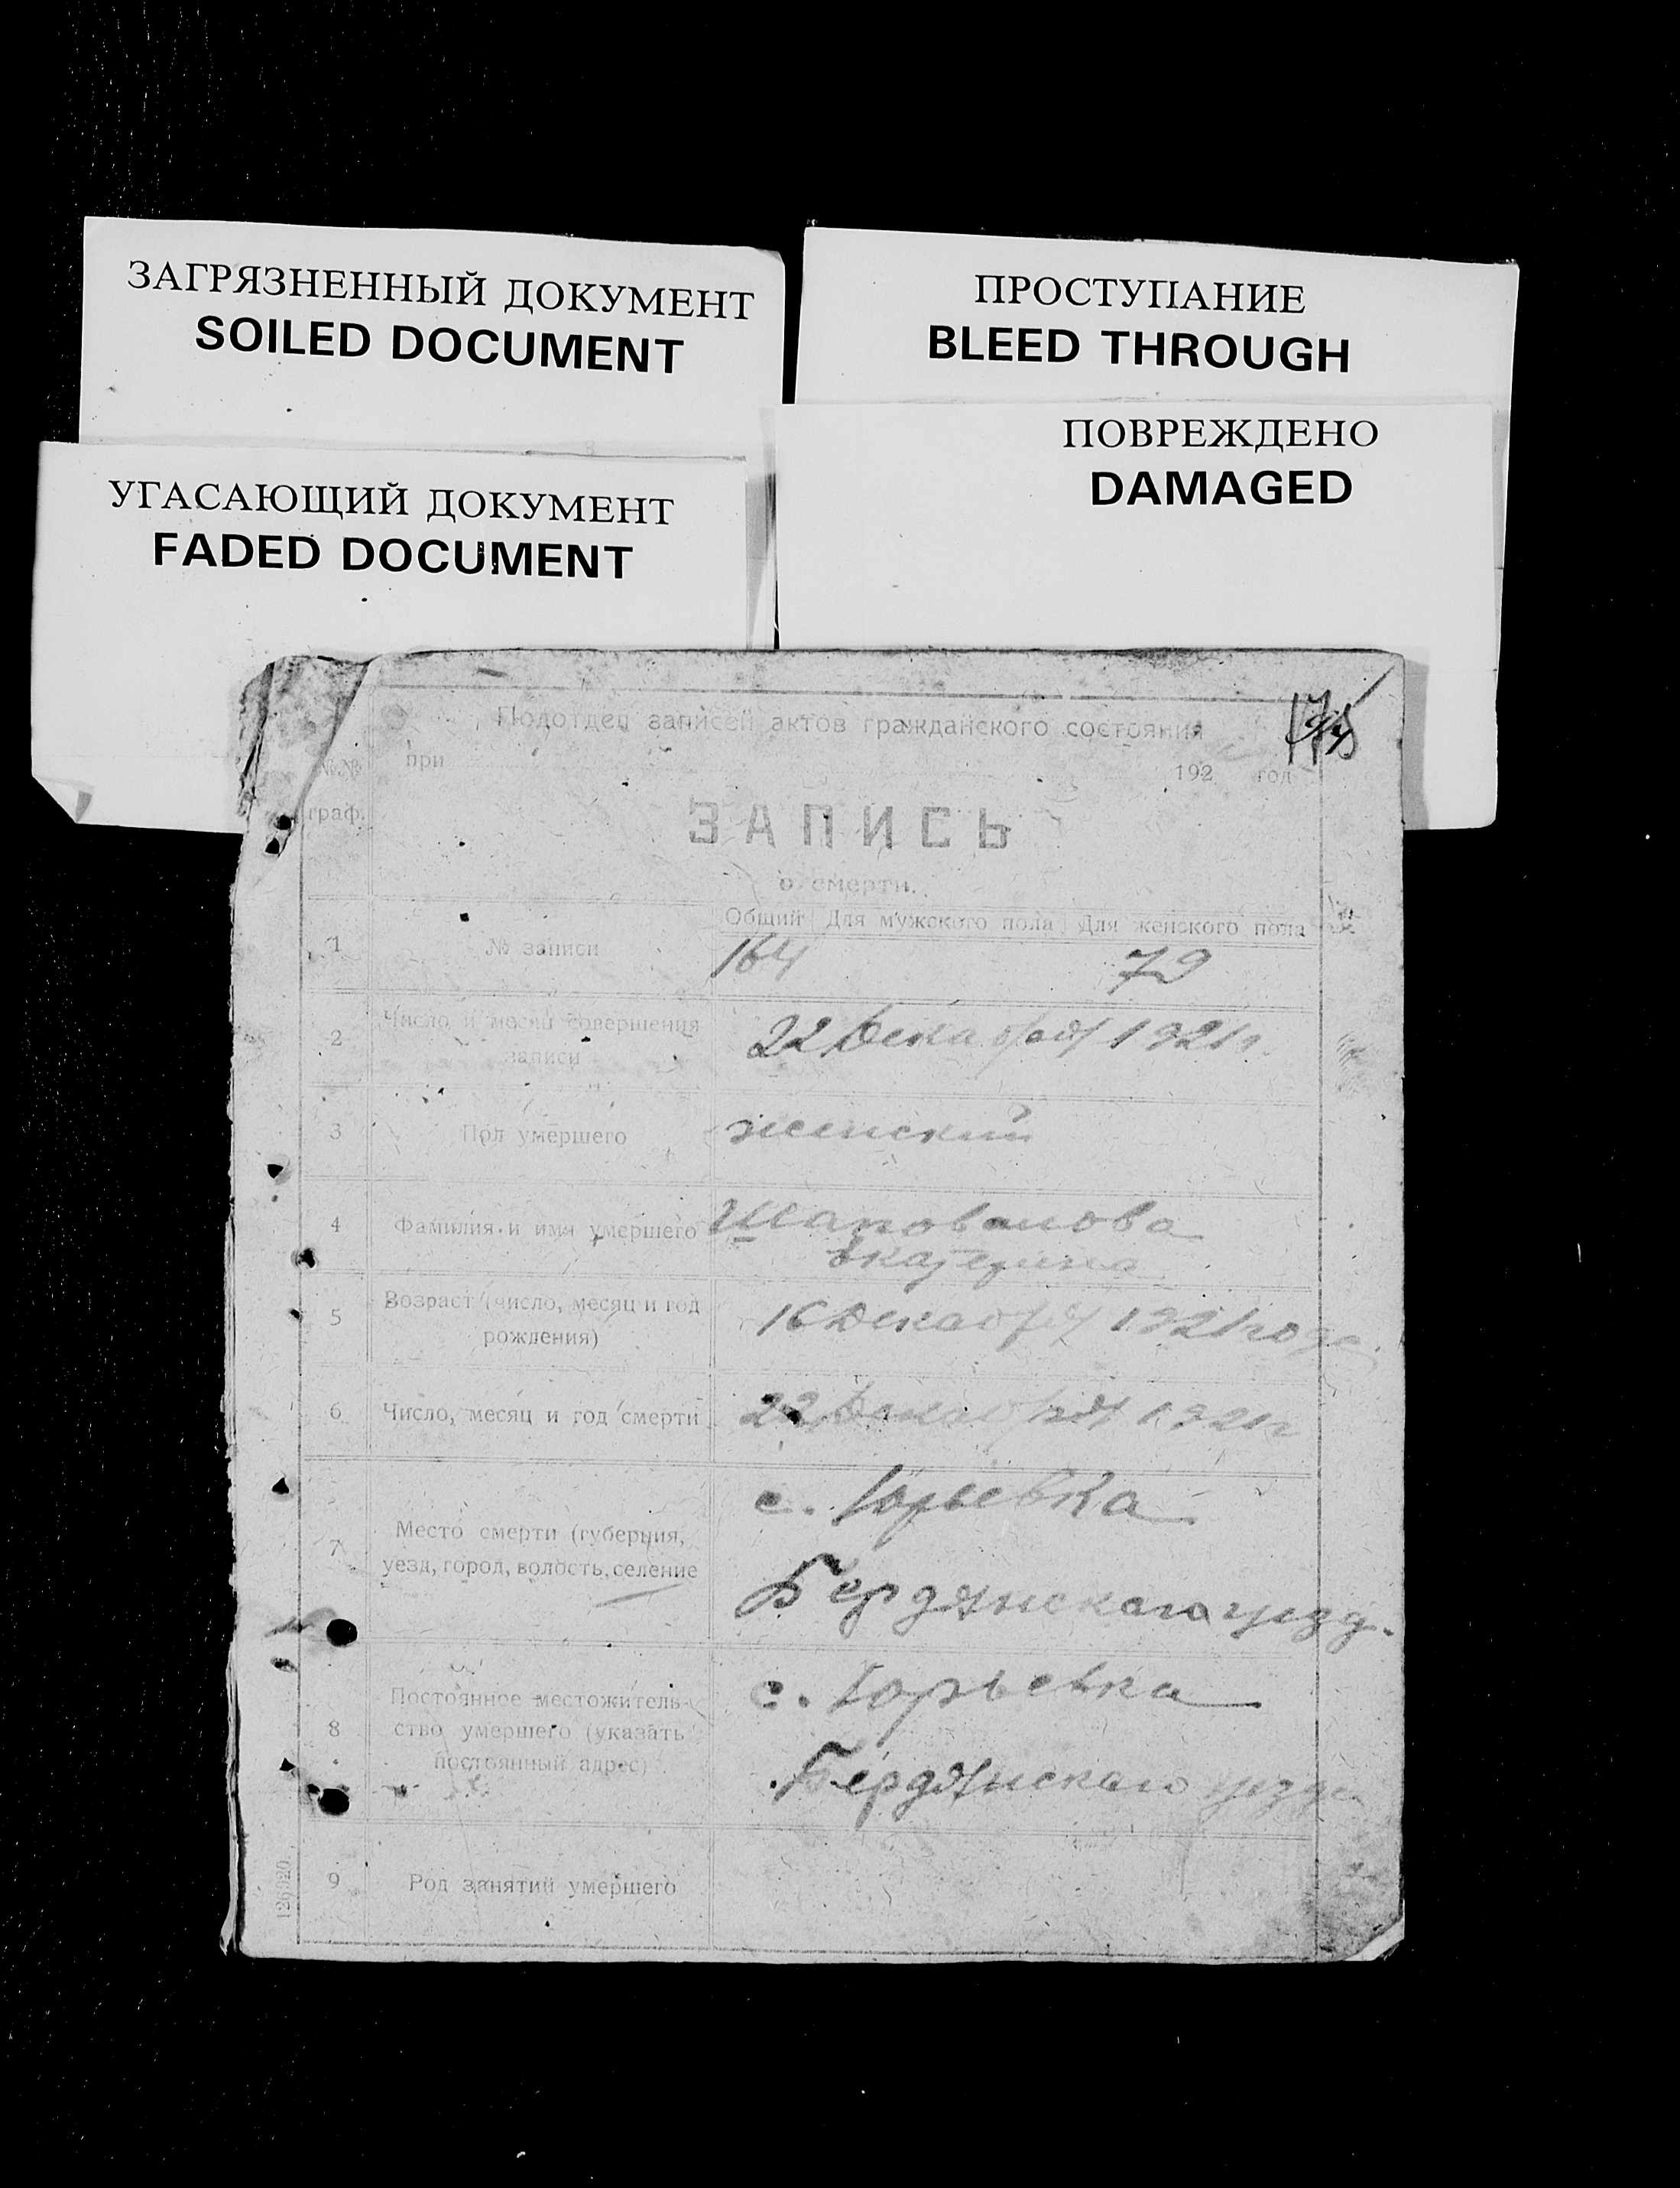 ЗАГРЯЗНЕННЫЙ ДОКУМЕНТ
SOILED DOCUMENT
ПРОСТУПАНИЕ
BLEED THROUGH
ПОВРЕЖДЕНО
DAMAGED
УГАСАЮЩИЙ ДОКУМЕНТ
FADED DOCUMENT
Подотдел записей актов гражданского состояния
№№ при 192 год
граф.
ЗАПИСЬ
о смерти.
Общий Для мужского пола Для женского пола
1 № записи 164 79
2 Число и месяц совершения
записи
22 декабря 1921 г.
3 Пол умершего женский
4 Фамилия и имя умершего Шаповалова
Екатерина
5 Возраст (число, месяц и год
рождения)
16 декабря 1921 года
6 Число, месяц и год смерти 22 декабря 1921 г
7 Место смерти (губерния,
уезд, город, волость, селение
с. Юрьевка
Бердянскаго уезд.
8 Постоянное местожитель-
ство умершего (указать
постоянный адрес)
с. Юрьевка
Бердянскаго уезда
9 Род занятий умершего